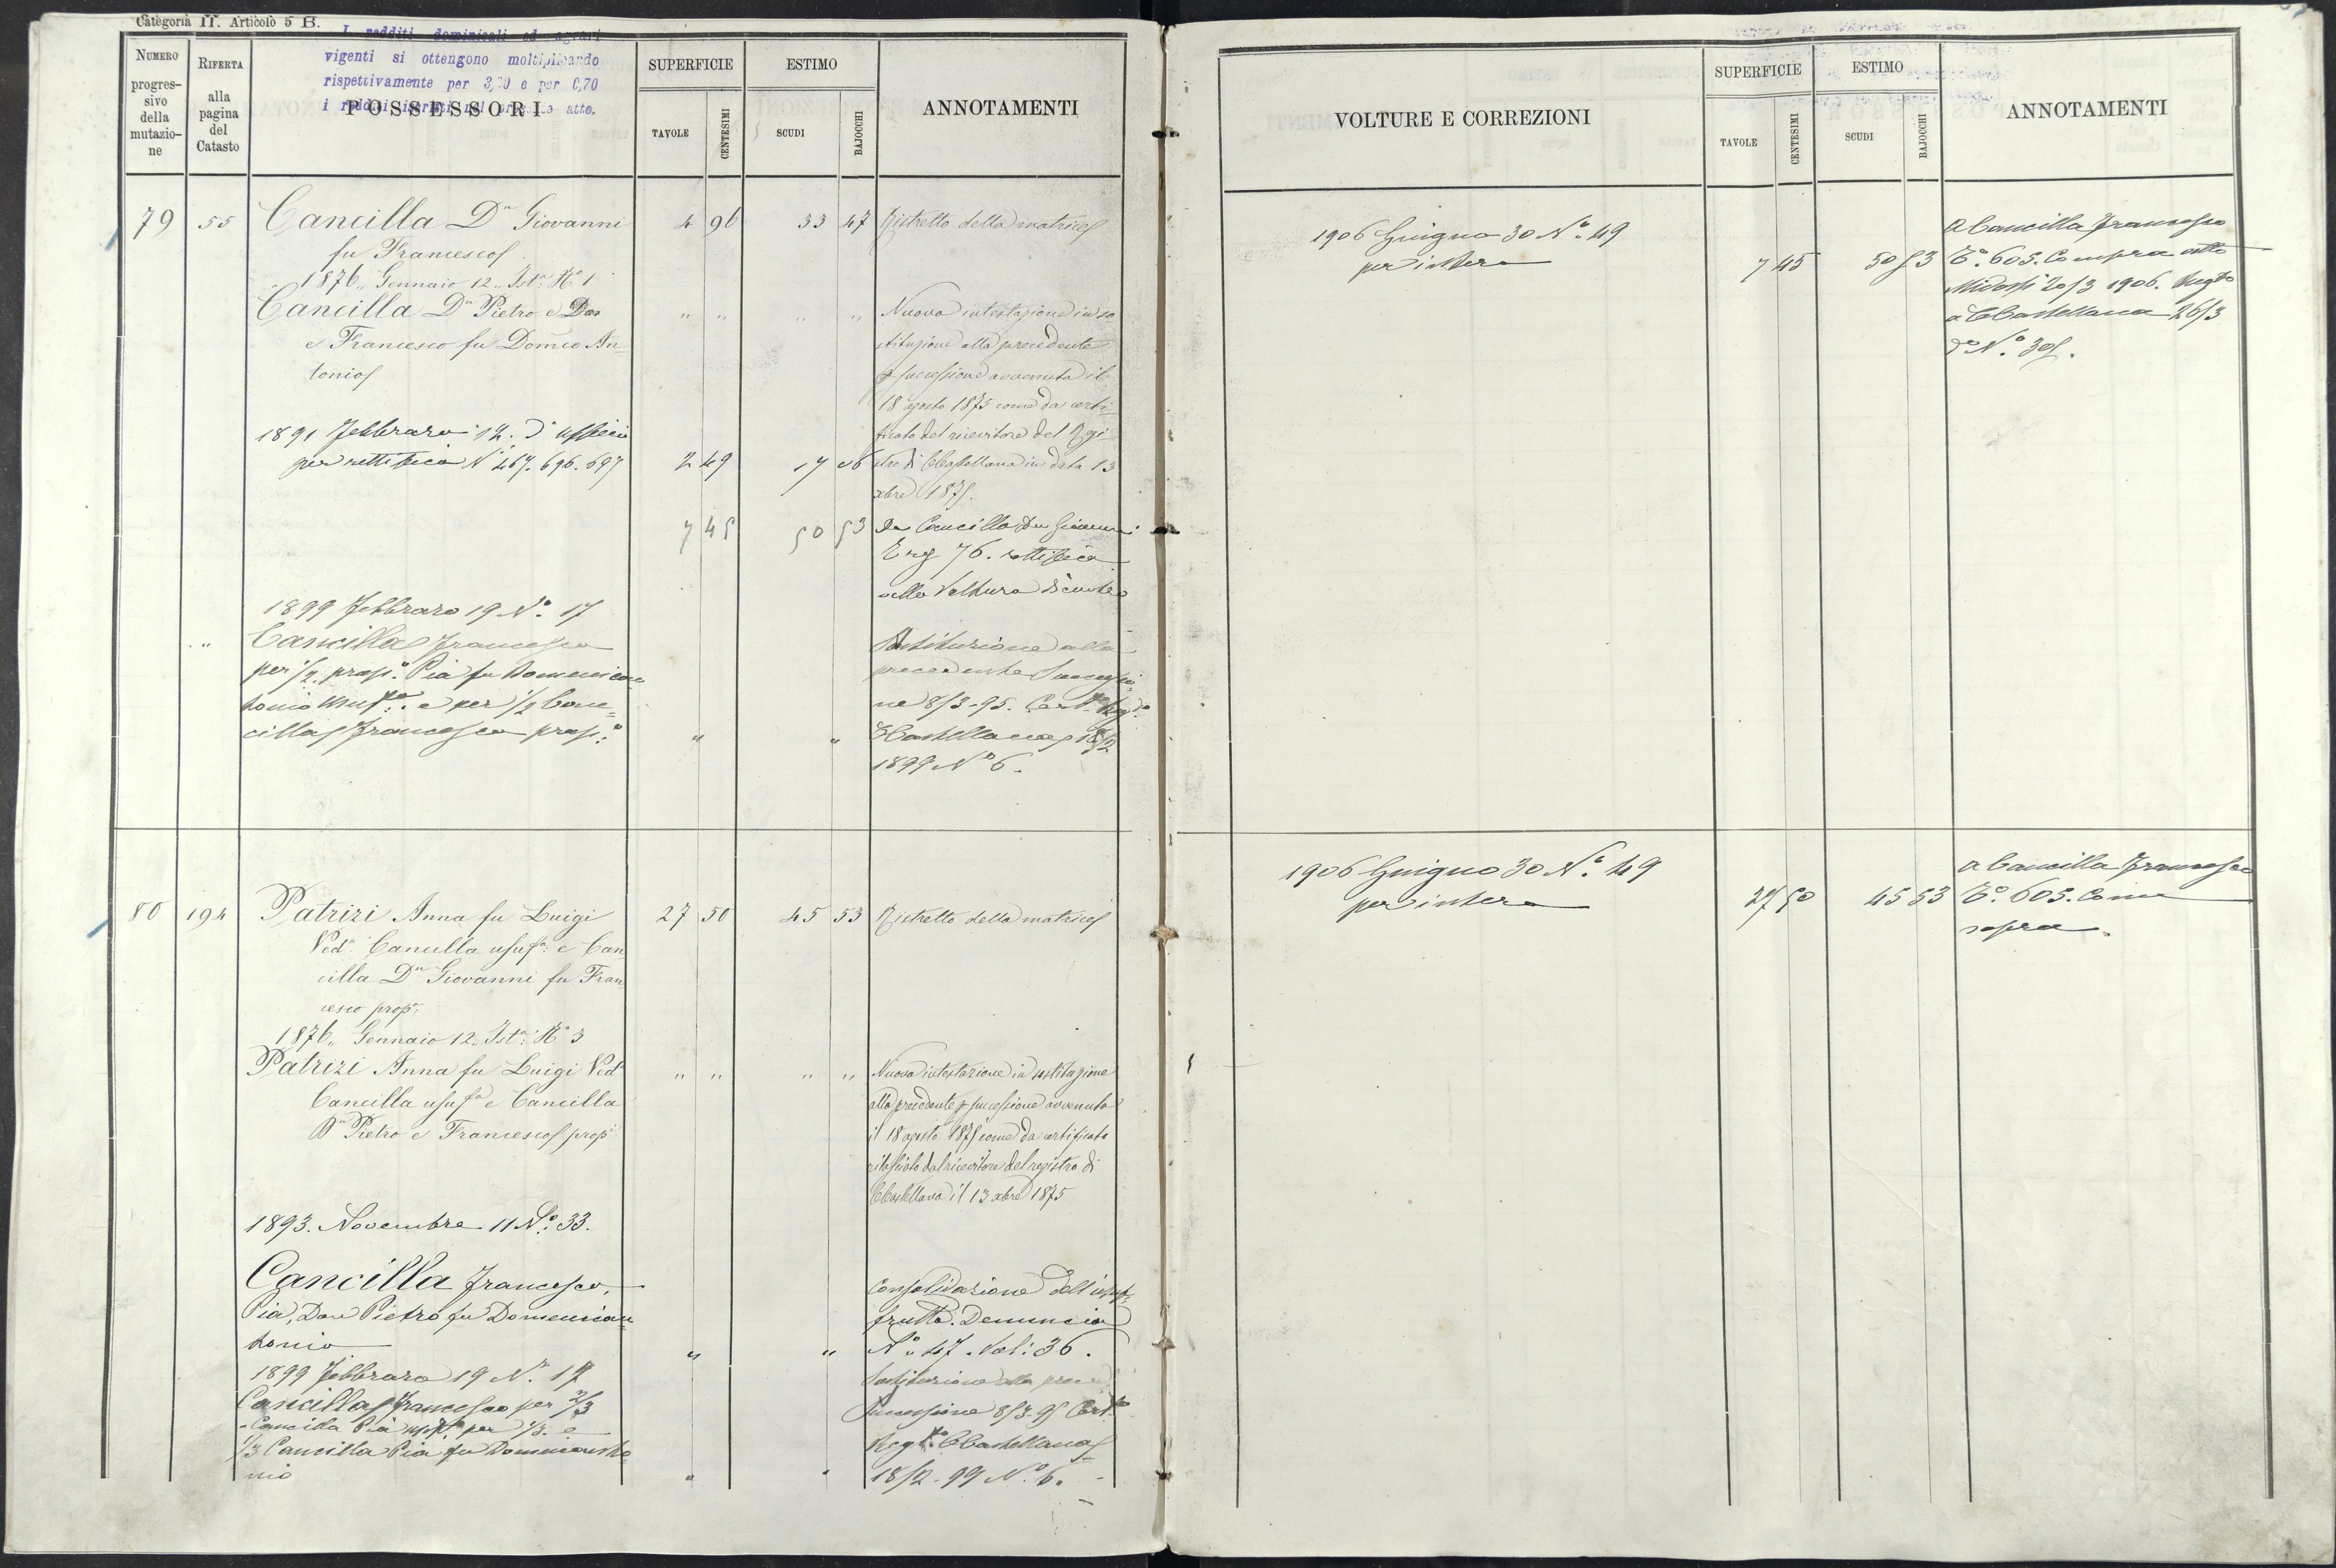 Categoria II. Articolo 5 B.
I redditi dominicali ed agrari
vigenti si ottengono moltiplicando
rispettivamente per 3,20 e per 0,70
i redditi iscritti nel presente atto.
NUMERO progressivo della mutazione
RIFERTA alla pagina del Catasto
POSSESSORI
SUPERFICIE
TAVOLE
CENTESIMI
ESTIMO
SCUDI
BAJOCCHI
ANNOTAMENTI
79 55 Cancilla Dn Giovanni 4 96 33 47 Ristretto della matrice
fu Francesco
1876,, Gennaio 12,, Ista No 1
Cancilla Dn Pietro e Don ,, ,, ,, ,, Nuova intestazione in so
e Francesco fu Domco An- stituzione alla precedente
tonio p successione avvenuta il
18 agosto 1875 come da certi-
1891 Febbraro 12. d'ufficio ficato del ricevitore del Regi
per rettifica N 467. 696. 697 2 49 17 06 stro di CCastellana in data 13
xbre 1875.
7 45 50 53 Da Cancilla Don Giovanni
76. rettifica
alla Voltura
1899 Febbraro 19 No. 17
,, Cancilla Francesco Sostituzione alla
per 1/2 propo. Pia fu Domenican- precedente Successio
tonio e per 1/2 Can= ne 8/3-95. Certo Rego
cilla Francesco propo. ,, ,, CCastellana 18/2
1899 No 6.
80 194 Patrizi Anna fu Luigi 27 50 45 53 Ristretto della matrice
Veda Cancilla usufa e Can
cilla Dn Giovanni fu Fran
cesco propo.
1876,, Gennaio 12,, Ista No 3
Patrizi Anna fu Luigi Veda ,, ,, ,, ,, Nuova intestazione in sostituzione
Cancilla usufa e Cancilla alla precedente p successione avvenuta
Dn Pietro e Francesco propi il 18 agosto 1875 come da certificato
rilasciato dal ricevitore del registro di
CCastellana il 13 xbre 1875
1893. Novembre 11 No. 33.
Cancilla Francesco, Consolidazione dell'usu-
Pia, Don Pietro fu Domenican= frutto. Denuncia
tonio ,, ,, No 47. Vol: 36.
1899 Febbraro 19 N. 17 Sostituzione alla preced
Cancilla Francesco per 2/3 Successione 8/3-95 Certo
Cancilla Pia per 1/3. e Rego CCastellana
1/3 Cancilla Pia fu Domenicanto=
nio ,, 18/2-99 No. 6.
VOLTURE E CORREZIONI
SUPERFICIE
TAVOLE
CENTESIMI
ESTIMO
SCUDI
BAJOCCHI
ANNOTAMENTI
1906 Giugno 30 No. 49 a Cancilla Francesco
per intero 7 45 50 53 To. 605. Compra atto
Midossi 20/3 1906. Regto
a CCastellana 26/3
do No. 305.
1906 Giugno 30 No. 49 a Cancilla Francesco
per intero 27 50 45 53 To. 605. Come
sopra.